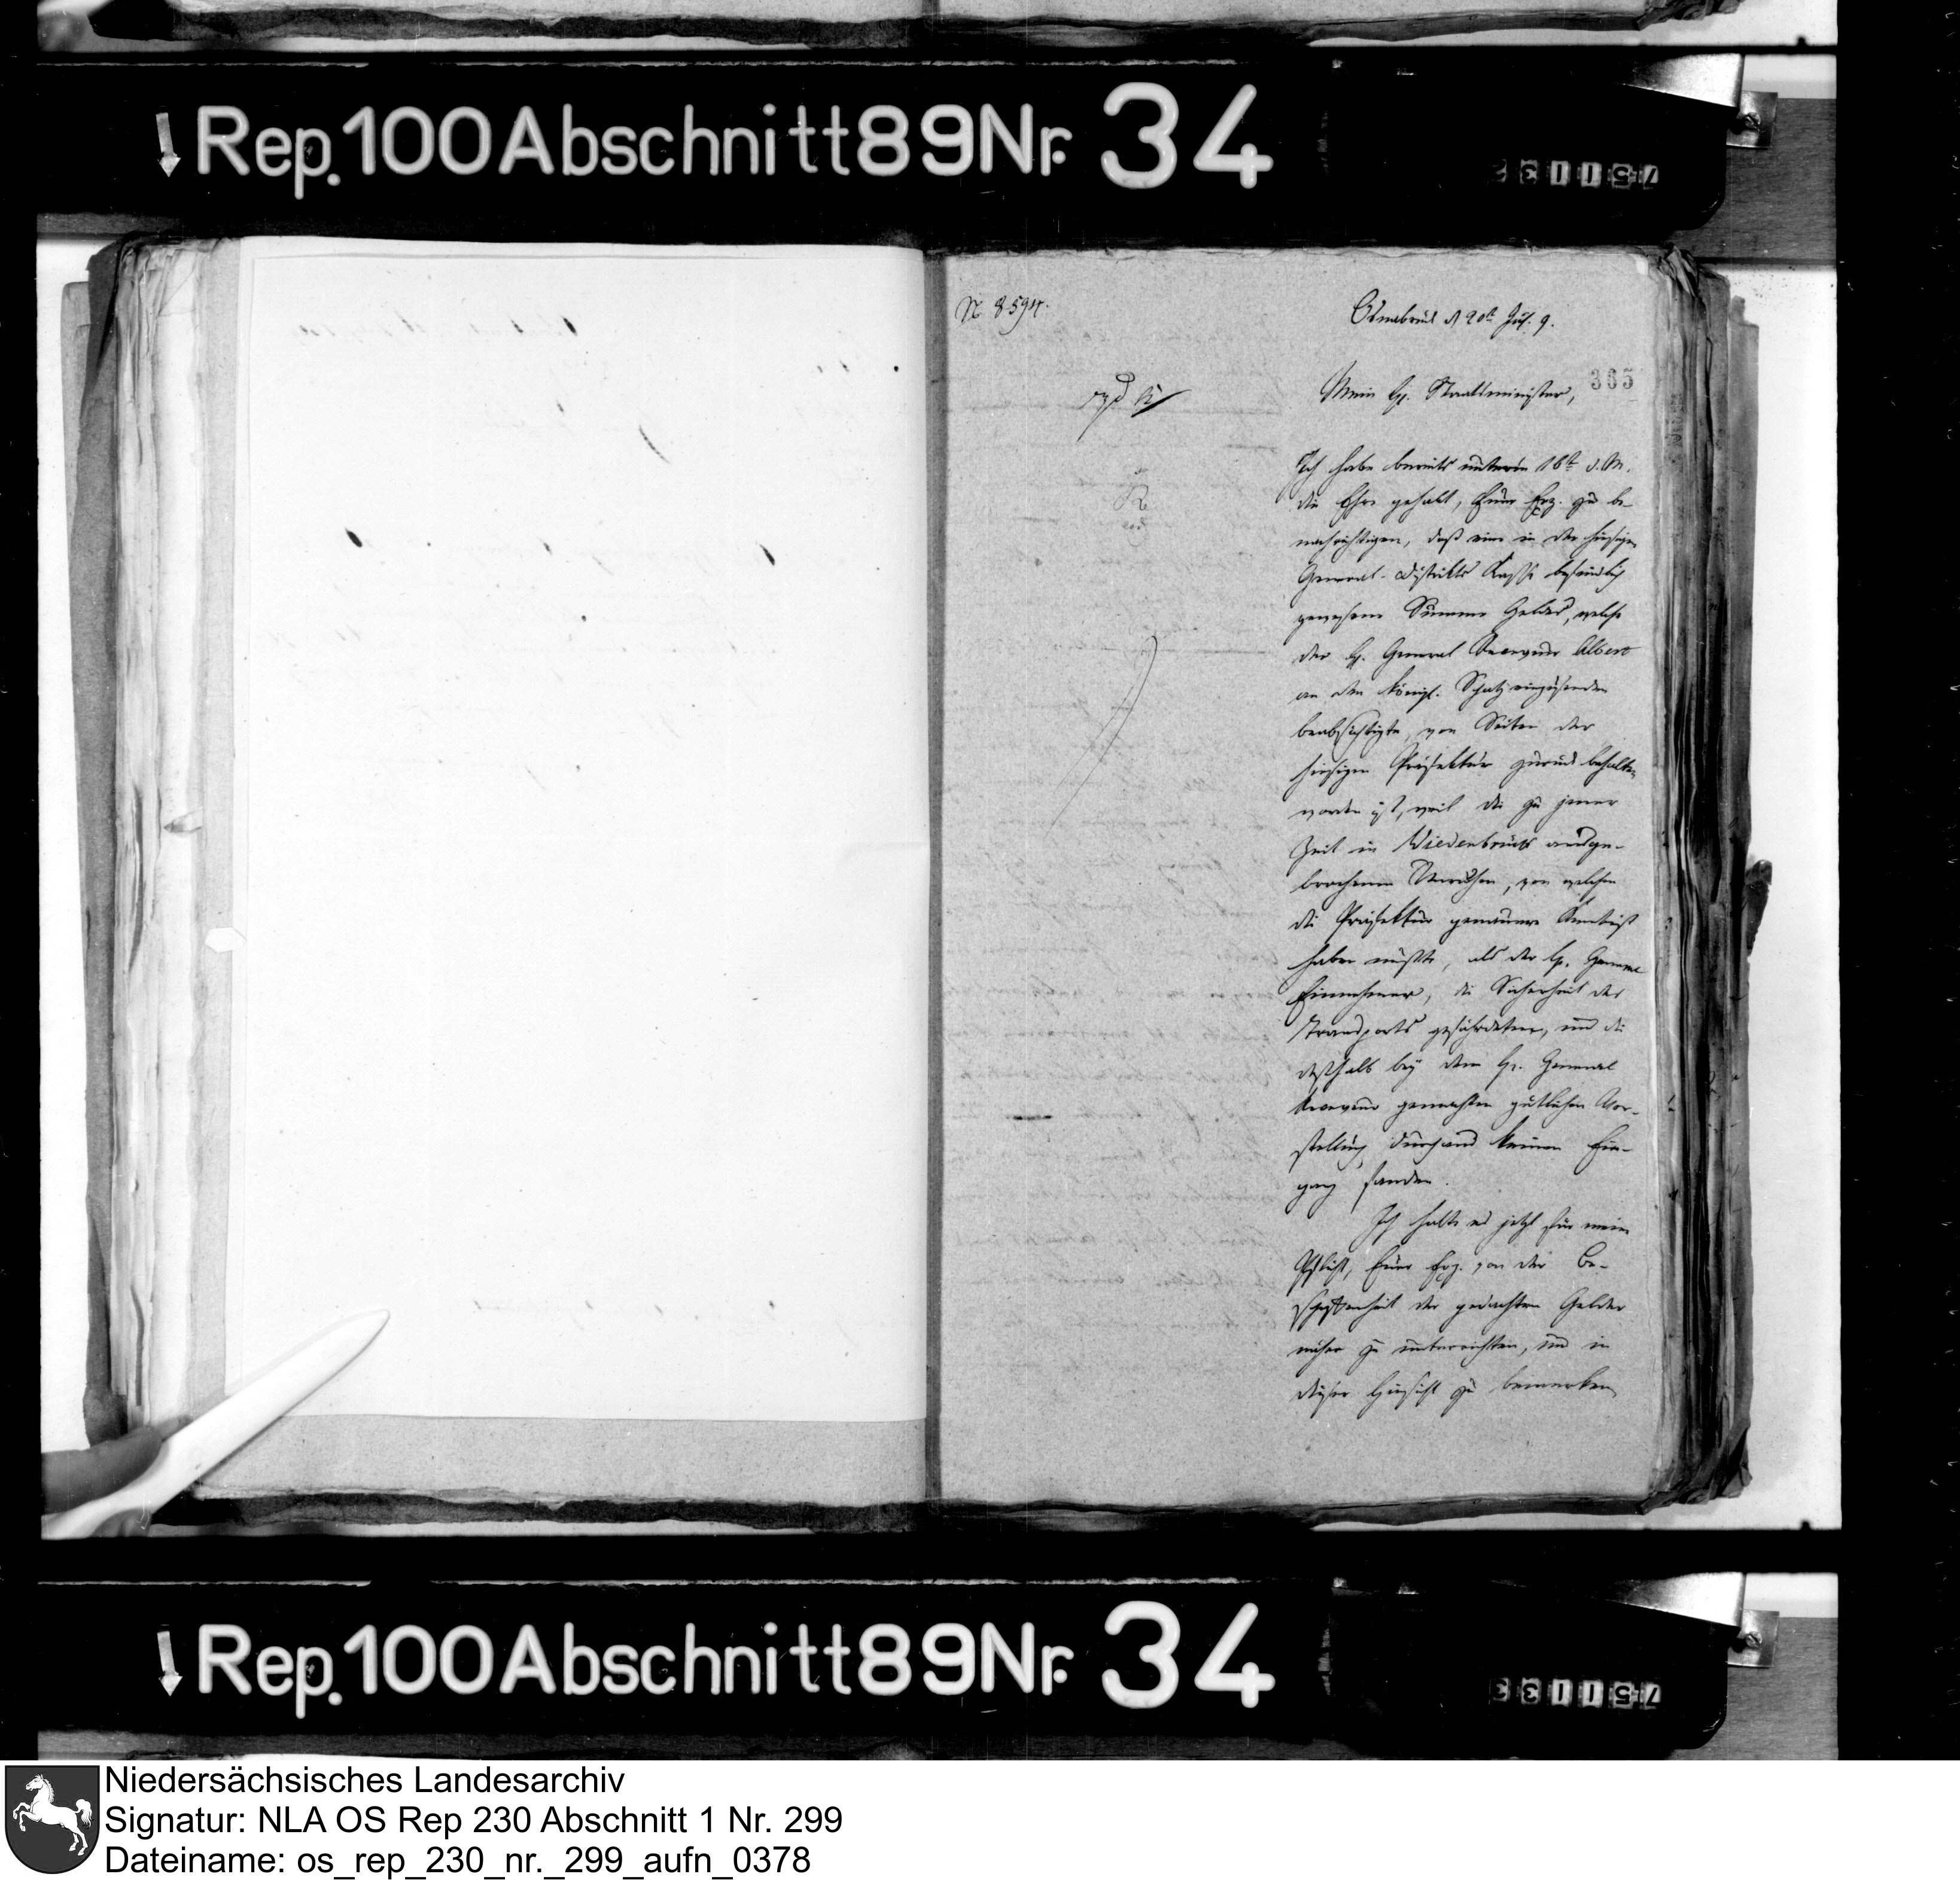 Rep. 100 Abschnitt 89 Nr. 34
N 8594.
Osnabrück d 20t Jul. 9.
365
Mein H. Staatsminister,
Ich habe bereits unterm 18t d. M.
die Ehre gehabt, Euer Exz. zu be-
nachrichtigen, daß eine in der hiesigen
General-Distrikts Kasse befindlich
gewesene Summe Geldes, welche
der H. General Receveur Albert
an den königl. Schatz einzusenden
beabsichtigte, von Seiten der
hiesigen Präfektur zurück behalten
worden ist, weil die zu jener
Zeit in Wiedenbrück ausge-
brochenen Unruhen, von welchen
die Präfektur genauere Kenntniß
haben mußte, als der H. General
Einnehmer, die Sicherheit des
Transports gefährdeten, und die
deshalb bey dem H. General
Receveur gemachten gütlichen Vor-
stellung durchaus keinen Ein-
gang fanden.
Ich halte es jetzt für meine
Pflicht, Euer Exz. von der Be-
schaffenheit der gedachten Gelder
näher zu unterrichten, und in
dieser Hinsicht zu bemerken
Rep. 100 Abschnitt 89 Nr. 34
Niedersächsisches Landesarchiv
Signatur: NLA OS Rep 230 Abschnitt 1 Nr. 299
Dateiname: os_rep_230_nr._299_aufn_0378